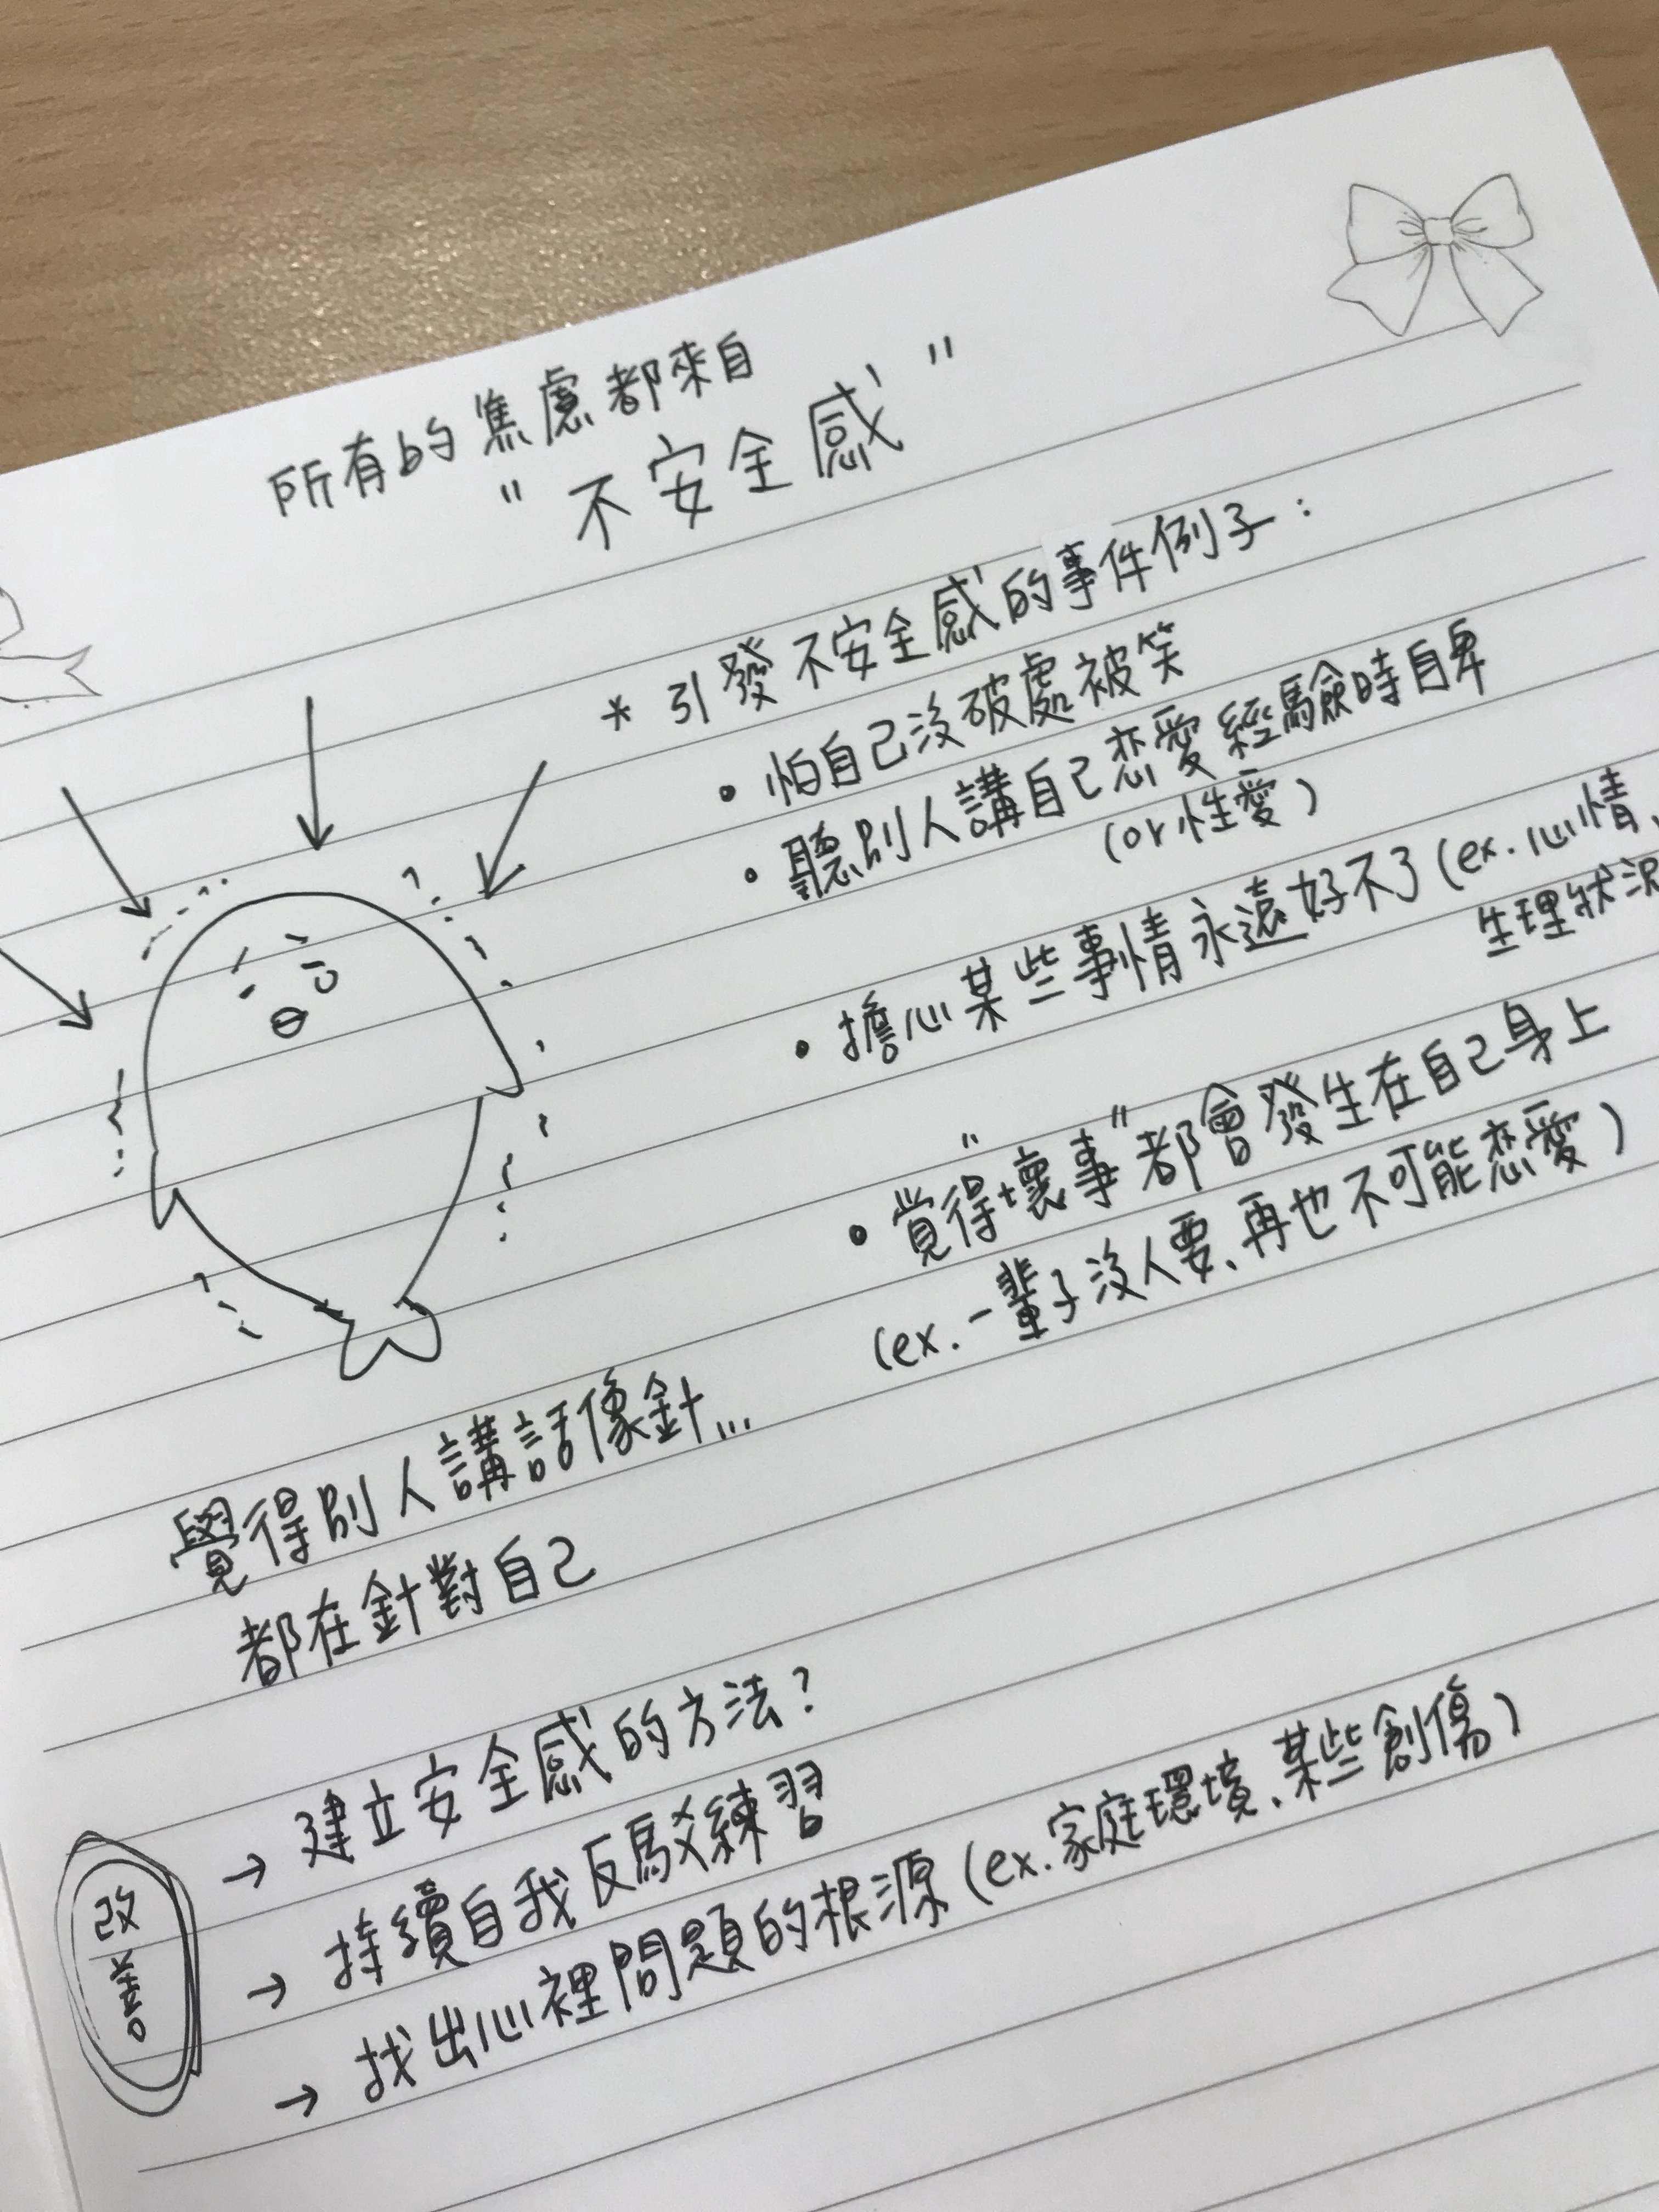 所有的焦慮都來自
"不安全感"
* 引發不安全感的事件例子：
• 怕自己沒破處被笑
• 聽別人講自己恋愛經驗時自卑
(or 性愛)
• 擔心某些事情永遠好不了 (ex. 心情、
生理狀況
• 覚得"壞事"都會發生在自己身上
(ex. 一輩子沒人要、再也不可能恋愛)
覺得別人講話像針...
都在針對自己
改善
→ 建立安全感的方法?
→ 持續自我反駁練習
→ 找出心裡問題的根源 (ex. 家庭環境、某些創傷)